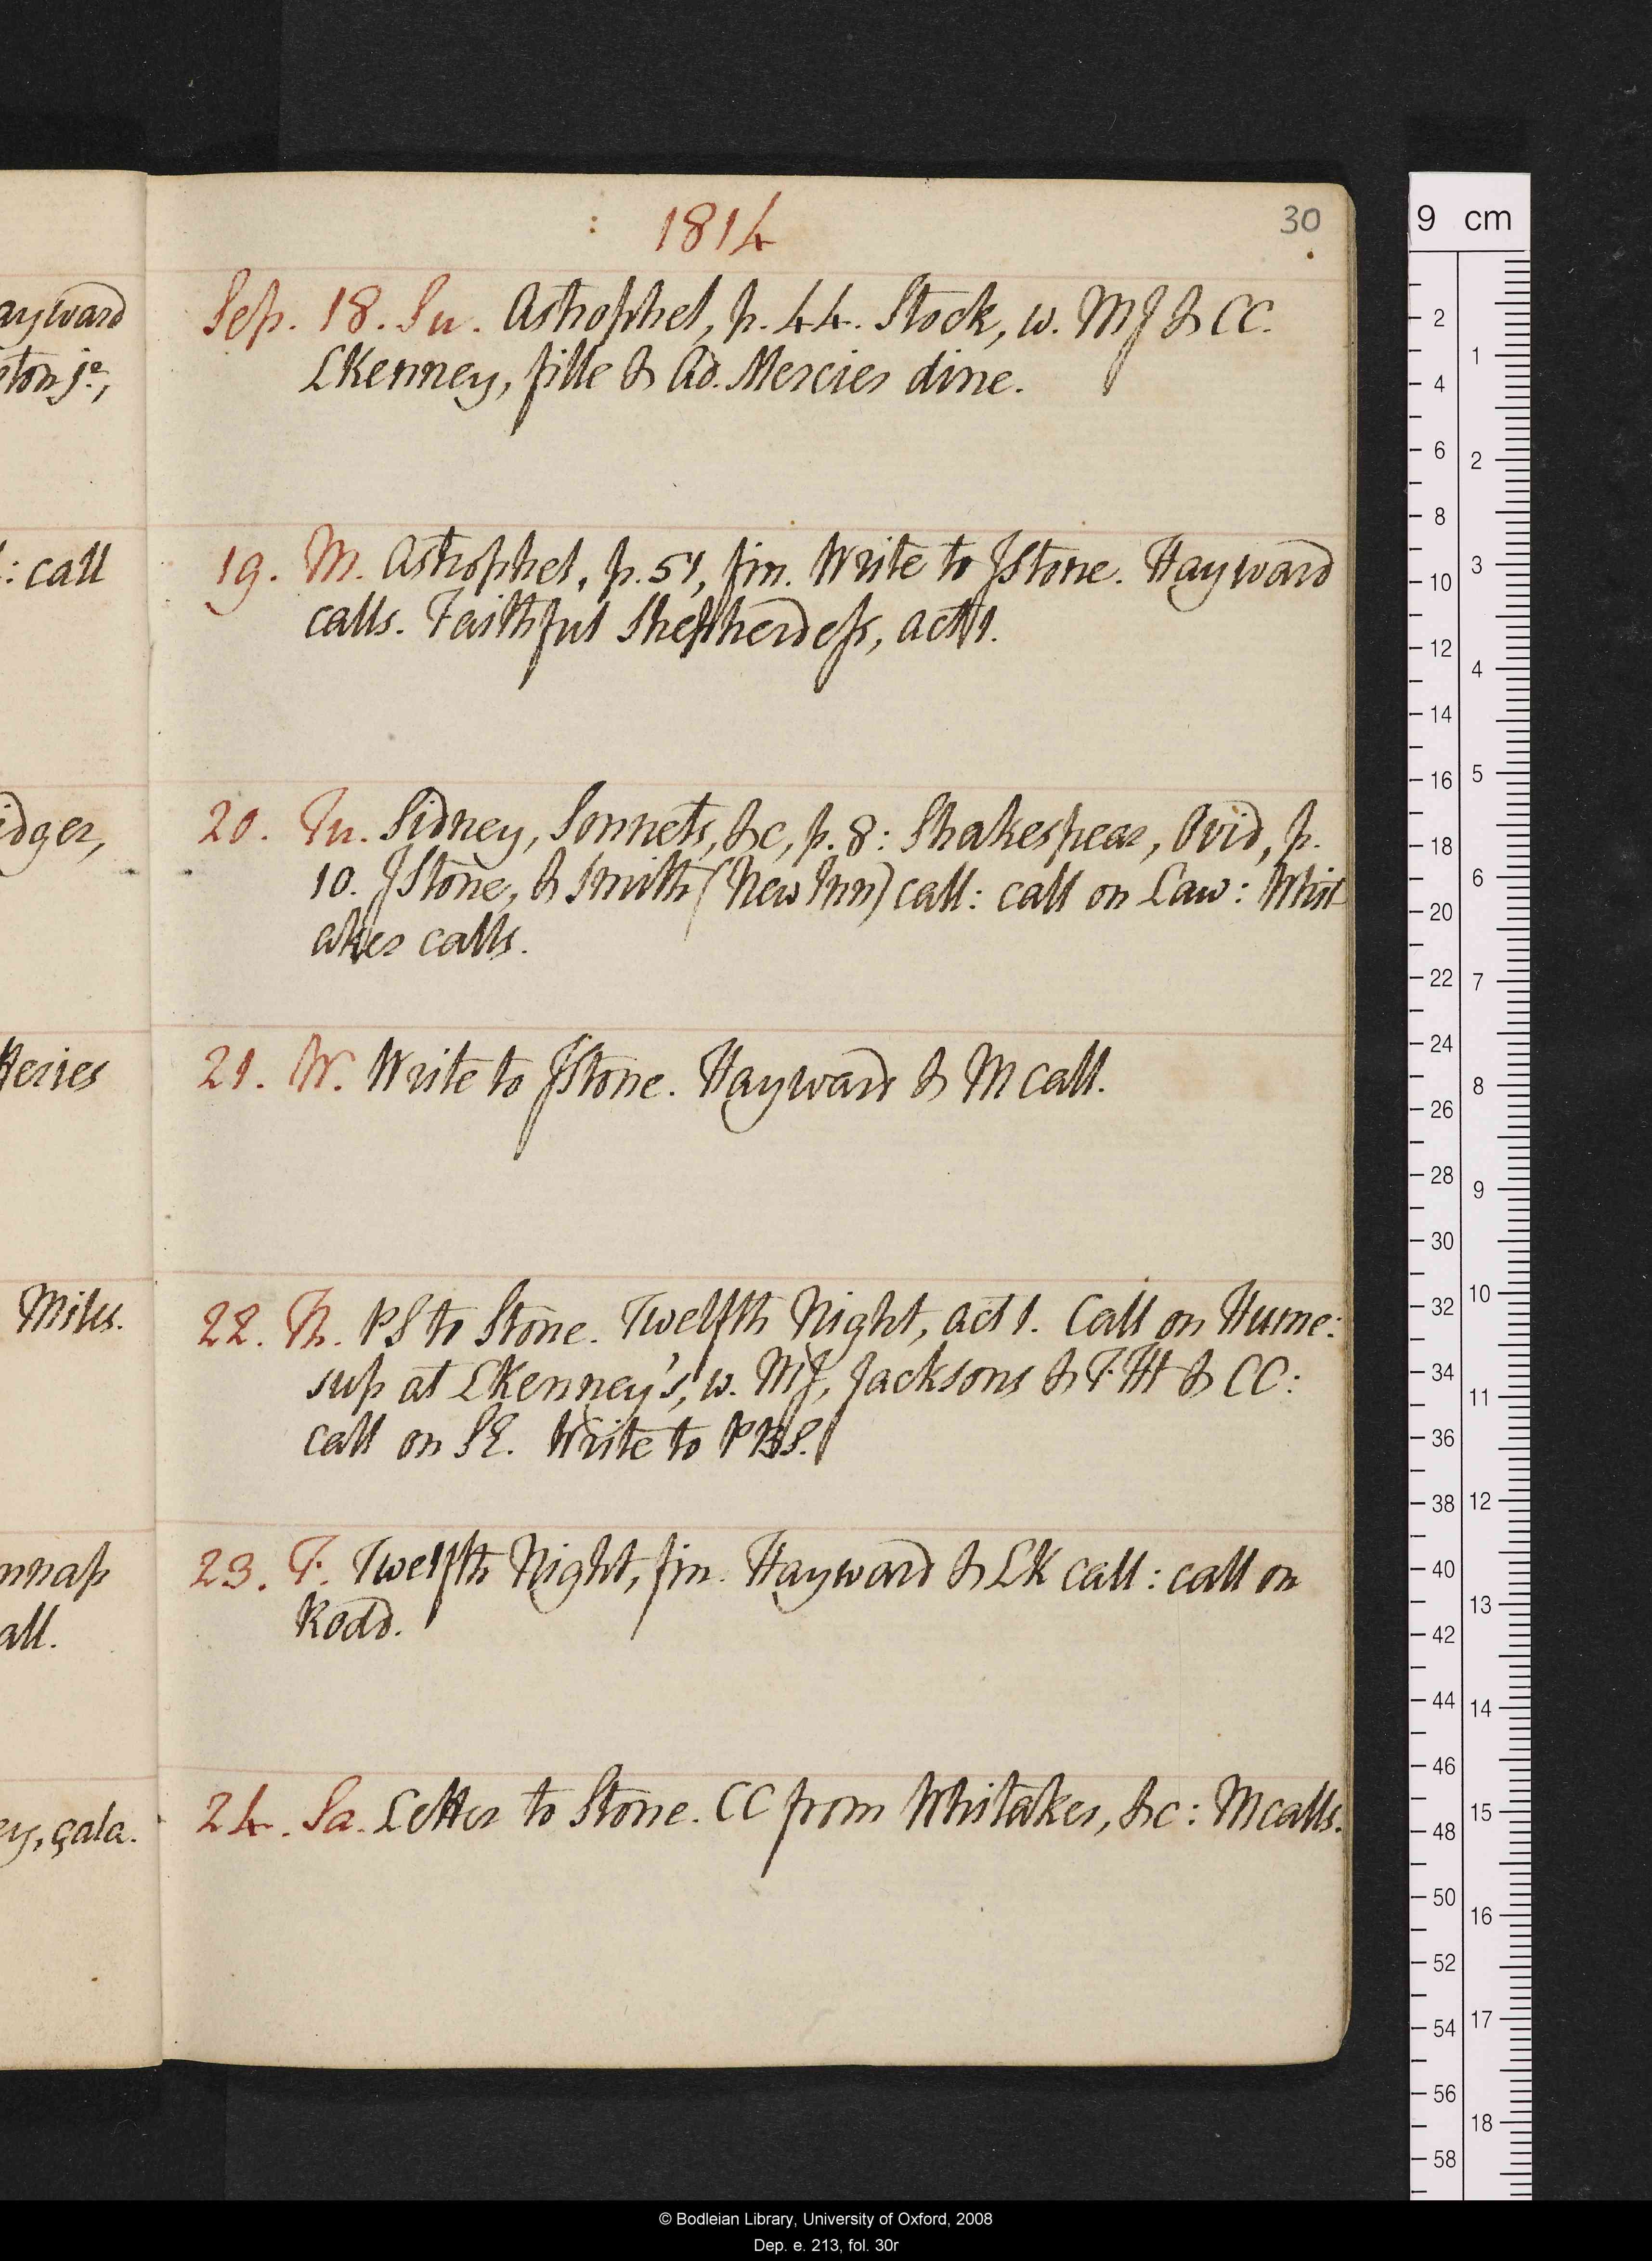 1814
30
Sep. 18. Su. Astrophel, p. 44. Stock, w. MJ & CC.
LKenney, fille & Ad. Mercier dine.
19. M. Astrophel, p. 51, fin. Write to JStone. Hayward
calls. Faithful Shepherdess, act 1.
20. Tu. Sidney, Sonnets, &c, p. 8: Shakespear, Ovid, p.
10. JStone, & Smith (New Inn) call: call on Law: Whit
aker calls.
21. W. Write to JStone. Hayward & M call.
22. Th. PS to Stone. Twelfth Night, act 1. Call on Hume:
sup at LKenney's, w. MJ, Jacksons & T.TH & CC:
call on SE. Write to PBS.
23. F. Twelfth Night, fin. Hayward & LK call: call on
Rodd.
24. Sa. Letter to Stone. CC from Whitaker, &c: M calls.
ayward
ston je,
: call
idger,
Miles.
all.
ey, gala.
9 cm
2
4
6
8
10
12
14
16
18
20
22
24
26
28
30
32
34
36
38
40
42
44
46
48
50
52
54
56
58
1
2
3
4
5
6
7
8
9
10
11
12
13
14
15
16
17
18
© Bodleian Library, University of Oxford, 2008
Dep. e. 213, fol. 30r